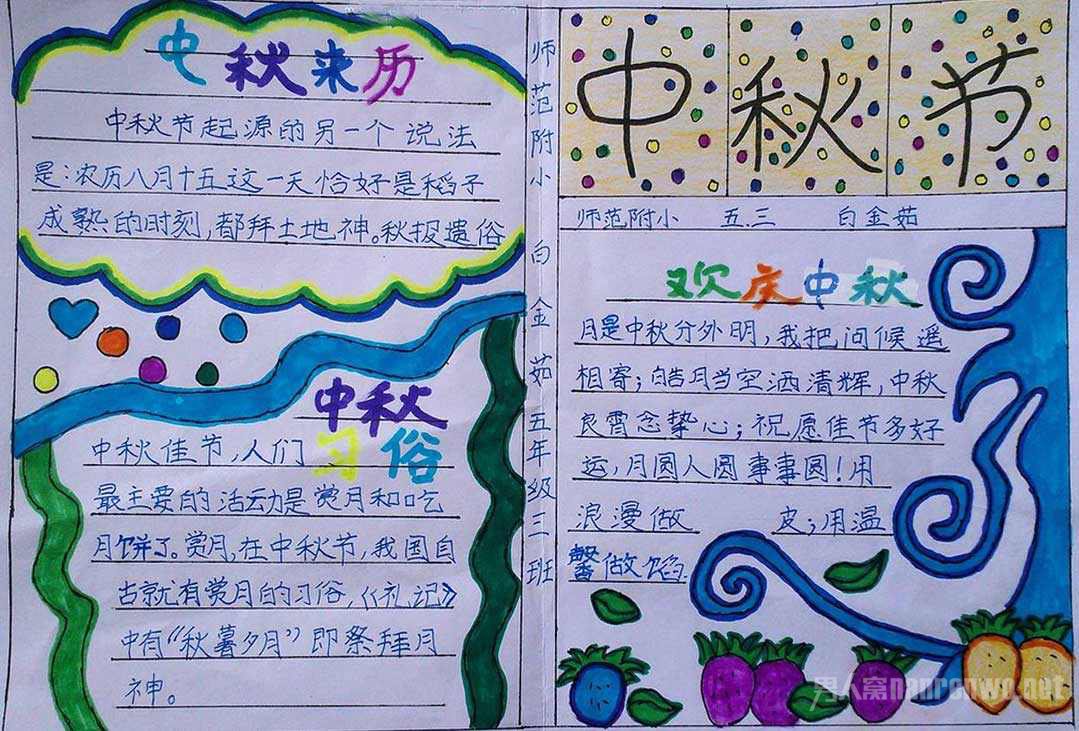 中秋来历
中秋节起源的另一个说法
是:农历八月十五这一天恰好是稻子
成熟的时刻,都拜土地神。秋报遗俗
中秋
习俗
中秋佳节,人们
最主要的活动是赏月和吃
月饼了。赏月,在中秋节,我国自
古就有赏月的习俗,《礼记》
中有“秋暮夕月”即祭拜月
神。
师范附小 白金茹 五年级三班
中秋节
师范附小 五.三 白金茹
欢庆中秋
月是中秋分外明,我把问候遥
相寄;皓月当空洒清辉,中秋
良霄念挚心;祝愿佳节多好
运,月圆人圆事事圆!用
浪漫做 皮;用温
馨做馅
男人窝nanrenwo.net